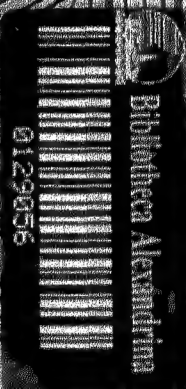 Bibliotheca Alexandrina
0129056